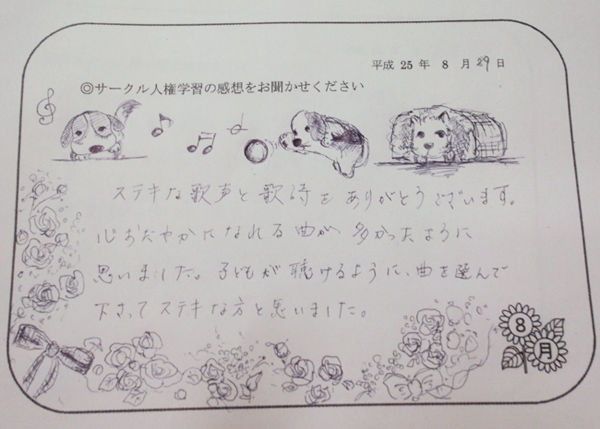 平成 25 年 8 月 29 日
◎サークル人権学習の感想をお聞かせください
ステキな歌声と歌詩を ありがとうございます。
心おだやかになれる曲が 多かったように
思いました。子どもが 聴けるように、曲を選んで
下さって ステキな方と思いました。
8
月